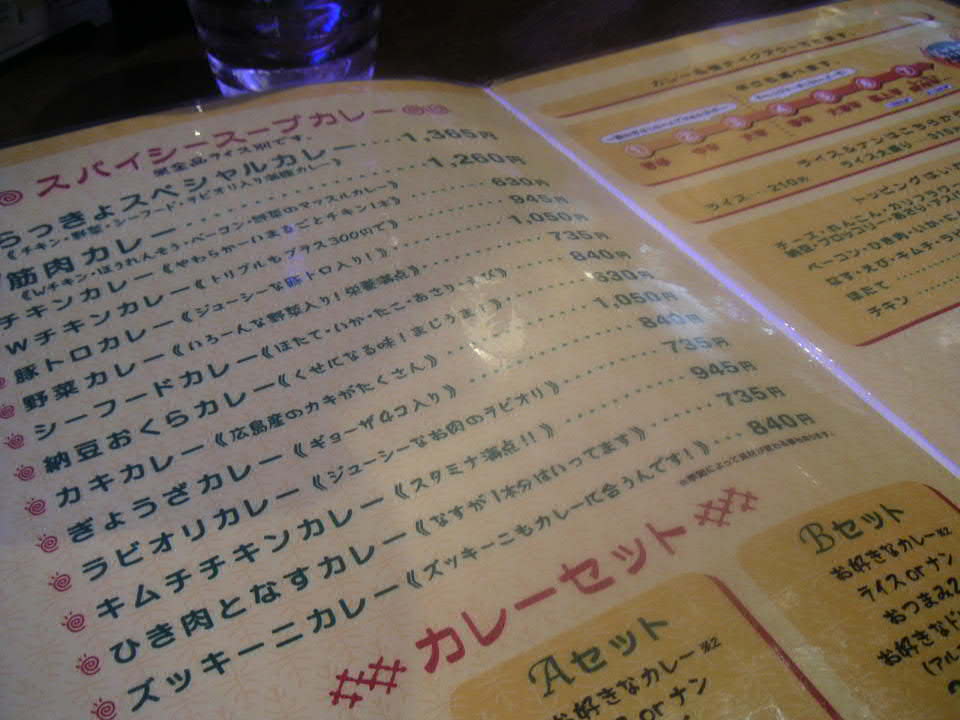 スパイシースープカレー
※全品ライス別です。
らっきょスペシャルカレー････1,365円
《チキン・野菜・シーフード・ラビオリ入り満腹カレー》
筋肉カレー････1,260円
《Wチキン・ほうれんそう・ベーコン・野菜のマッスルカレー》
チキンカレー《やわらかーいまるごとチキン1本》 630円
Wチキンカレー《トリプルもプラス300円で》 945円
豚トロカレー《ジューシーな豚トロ入り！》 1,050円
野菜カレー《いろーんな野菜入り！栄養満点》 735円
シーフードカレー《ほたて・いか・たこ・あさり・えび》 840円
納豆おくらカレー《くせになる味！まじうま！》 630円
カキカレー《広島産のカキがたくさん》 1,050円
ぎょうざカレー《ギョーザ4コ入り》 840円
ラビオリカレー《ジューシーなお肉のラビオリ》 735円
キムチチキンカレー《スタミナ満点！！》 945円
ひき肉となすカレー《なすが1本分はいってます》 735円
ズッキーニカレー《ズッキーニもカレーに合うんです！》 840円
※季節によって具材が変わる事もあります。
カレーセット
Aセット
お好きなカレー※2
orナン
Bセット
お好きなカレー※2
ライスorナン
おつまみ2
お好きなド
(アル
ライス&ナンはこちらか
ライス‥‥210円
ライス大盛り
トッピングはい
チーズ・れんこん
納豆・ブロッコリー
ベーコン・ひき肉・いか・た
なす・えび・キムチ・ラ
ほたて‥‥
チキン‥‥